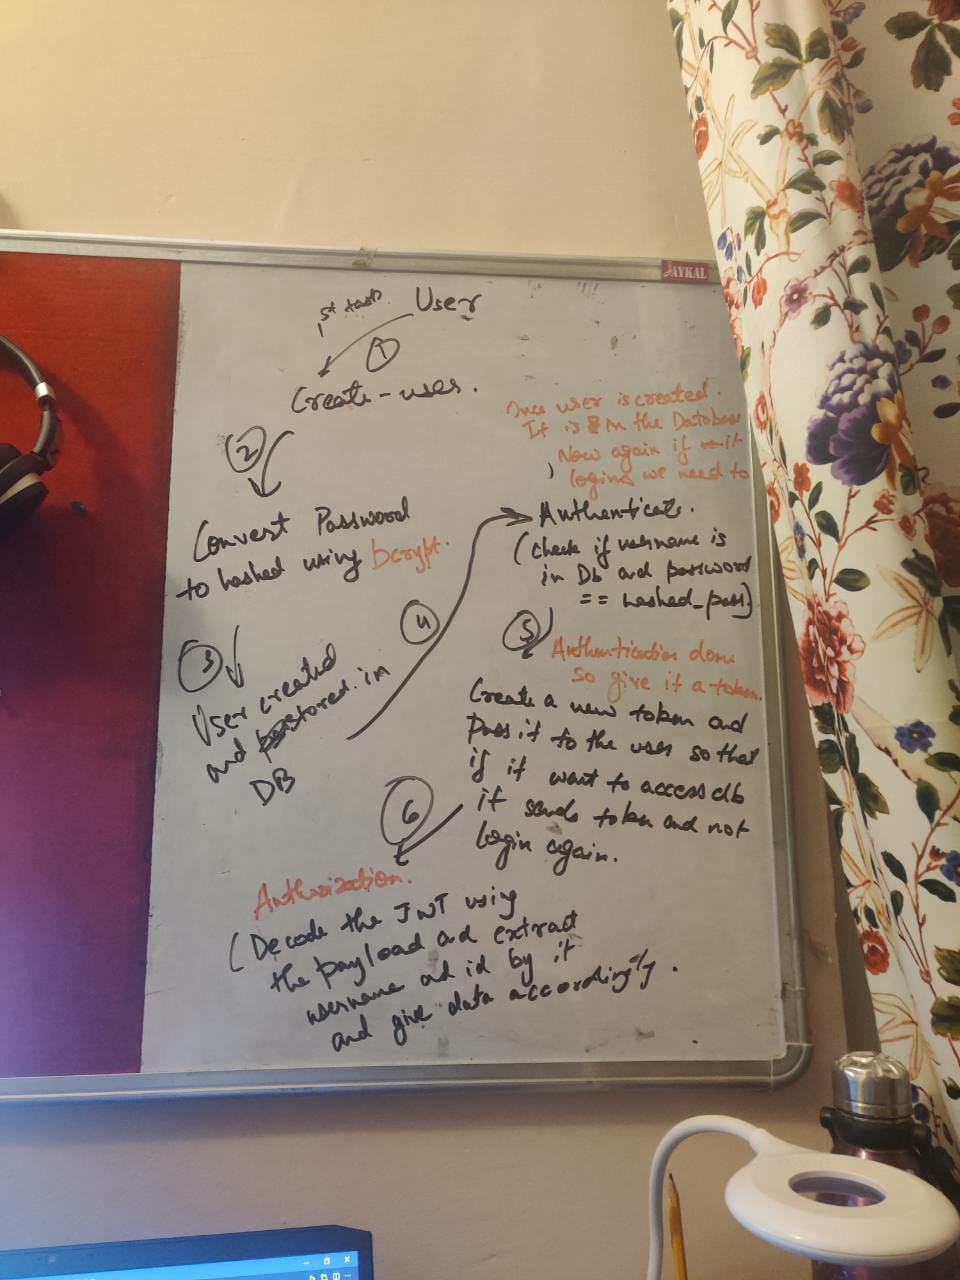 JAYKAL
1st task
User
1
Create-user.
2
Convert Password
to hashed using bcrypt.
3
User created
and stored in
DB
4
Once user is created.
It is in the Database
Now again if it
logins we need to
Authenticate.
(check if username is
in Db and password
== hashed_pass)
5
Authentication done
so give it a token.
Create a new token and
Pass it to the user so that
if it want to access db
it sends token and not
login again.
6
Authorization.
(Decode the JWT using
the payload and extract
username ad id by it
and give data accordingly.